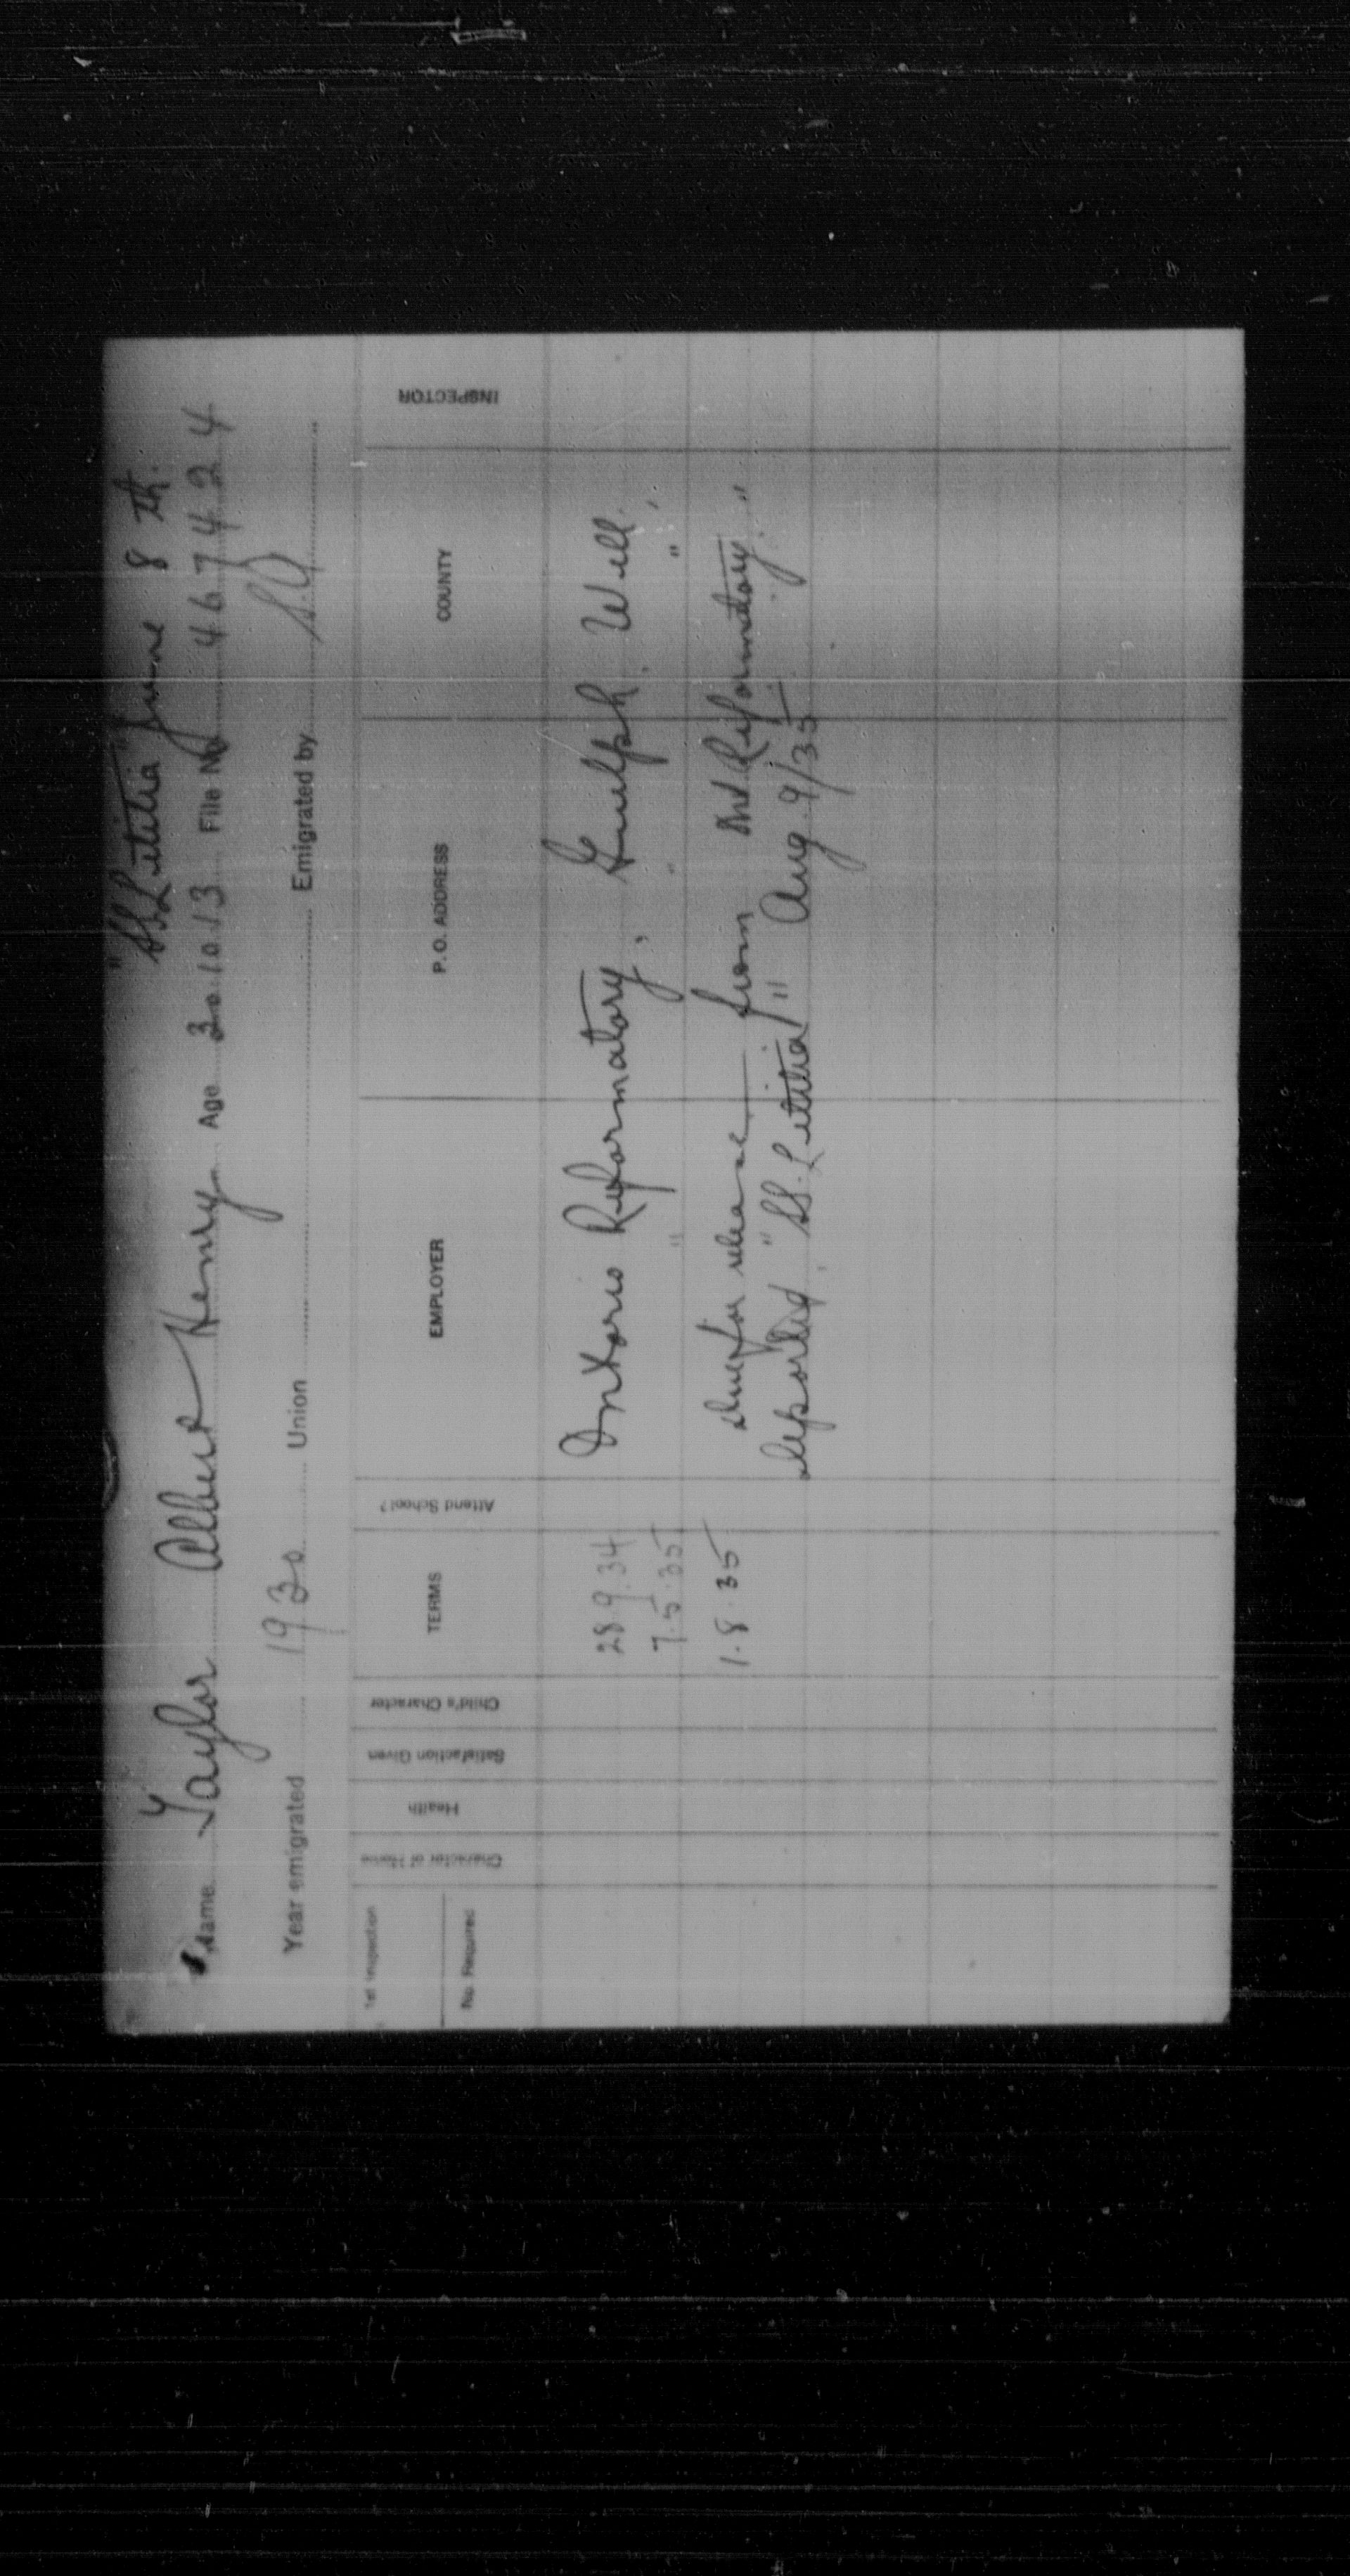 "SS. Letitia" June 8th.
Name Taylor Albert Henry Age 30.10.13 File No 467424
Year emigrated 1930 Union Emigrated by S.A
1st Inspection
No. Required
Character of Home
Health
Satisfaction Given
Child's Character
TERMS
Attend School?
EMPLOYER
P. O. ADDRESS
COUNTY
INSPECTOR
28.9.34 Ontario Reformatory, Guelph, Well.
7.5.35 " " "
1.8.35 due for release from Ont. Reformatory. "
deported, "SS. Letitia" Aug. 9/35